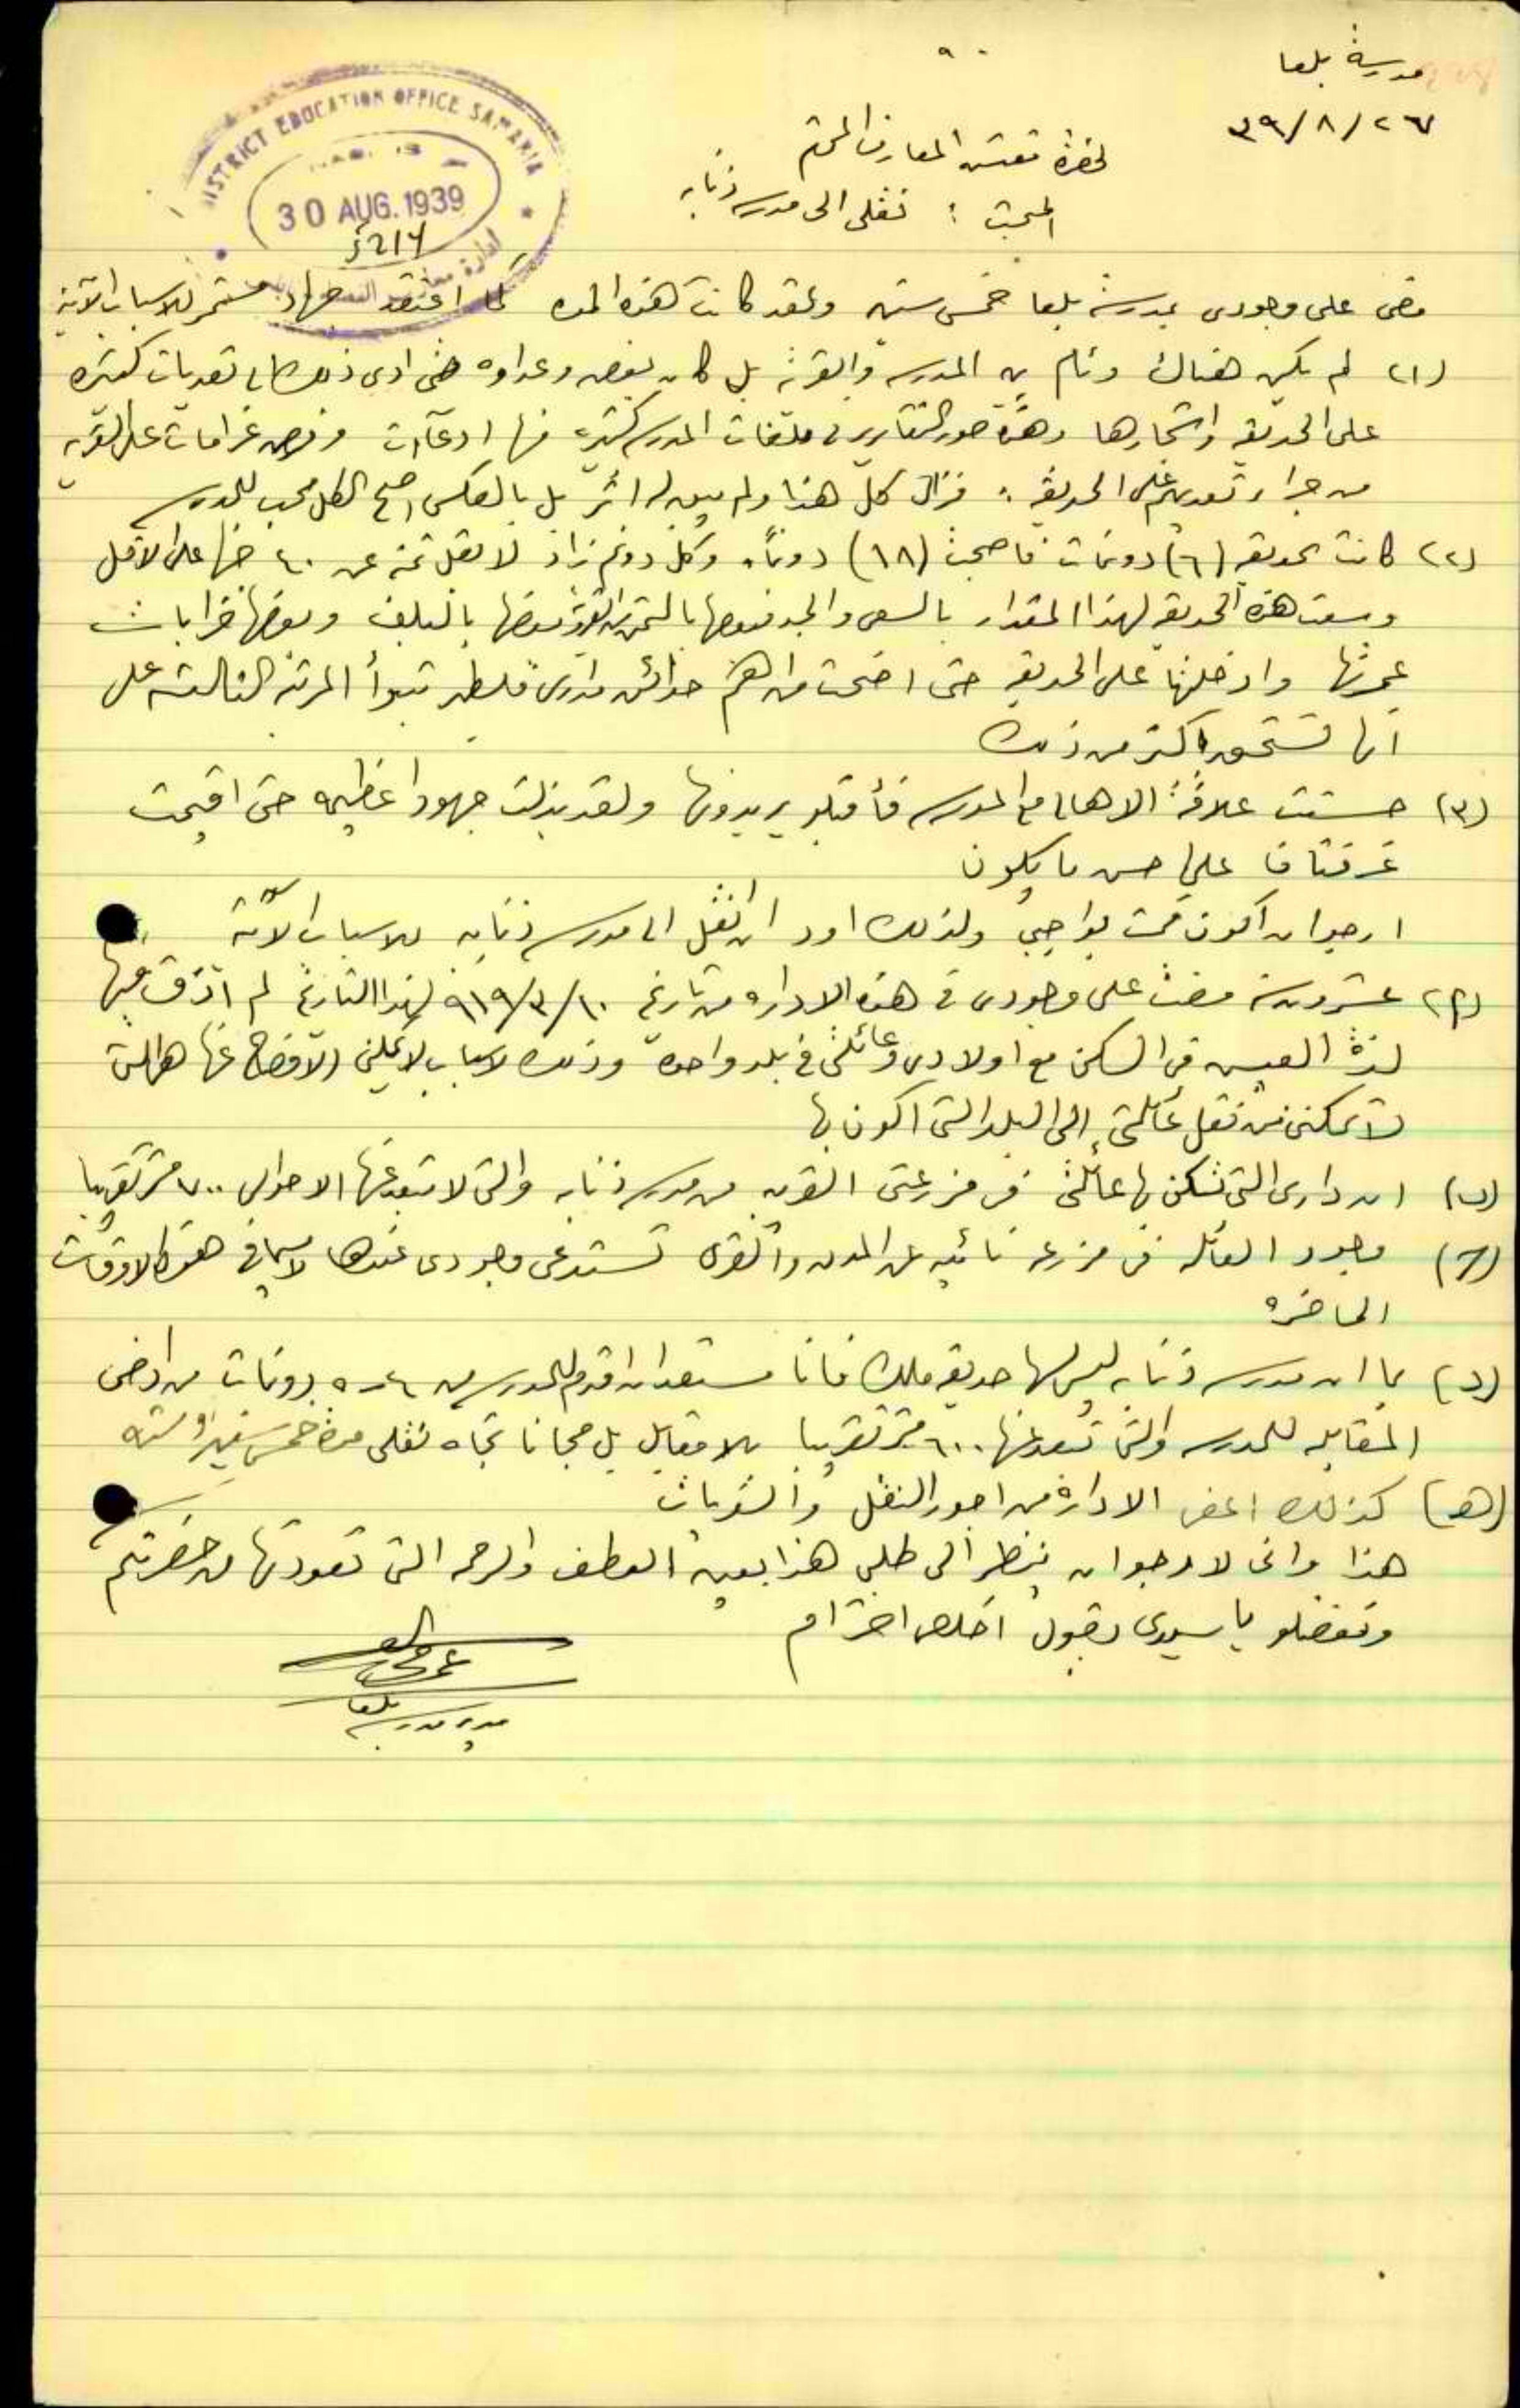 مدرسة بلعا
٢٦/٨/٣٩
DISTRICT EDUCATION OFFICE SAMARIA
30 AUG. 1939
5214
ادارة معارف
لحضرة مفتش المعارف المحترم
المبحث : نقلي الى مدرسة ذنابه
مضى على وجودي بمدرسة بلعا خمس سنين ولقد كانت هذه المده كما اعتقد جهاد مستمر للاسباب الآتية
(١) لم يكن هناك وئام بين المدرسه والقرية بل كان بغض وعداوه حتى ادى ذلك الى تعديات كثيره
على الحديقه واشجارها وهذه صور التقارير في ملفات المدرسه كثيره فيها ادعاآت وفرض غرامات على القريه
من جراء تعديهم على الحديقه . فزال كل هذا ولم يبق له اثر بل بالعكس اصبح الكل محب للمدرسه
(٢) كانت الحديقه (٦) دونمات فاصبحت (١٨) دونماً وكل دونم زاد لا يقل ثمنه عن ٤٠ جنيها على الاقل
وسعت هذه الحديقه لهذا المقدار بالسعي والجد فبعضها بالثمن من القرية وبعضها بالتبلف وبعضها خرابات
عمرتها وادخلتها على الحديقه حتى اضحت من اهم حدائق مدارس فلسطين تتبوأ المرتبة الثالثه على
انها تستحق اكثر من ذلك
(٣) حسنت علاقة الاهالي مع المدرسه فأقبلو يريدونها ولقد بذلت جهودا عظيمه حتى اقيمت
غرفتان على احسن ما يكون
ارجو ان اكون قمت بواجبي ولذلك اود ان انقل الى مدرسة ذنابه للاسباب الآتية
(أ) عشرون سنة مضت على وجودي في هذه الاداره من تاريخ ١٠/٣/٩١٩ لهذا التاريخ لم اذق فيها
لذة العيش في السكن مع اولادي وعائلتي في بلد واحده وذلك لاسباب لا يمكنني الافصاح عنها هي التي
لا تمكنني من نقل عائلتي الى البلد التي اكون بها
(ب) ان داري التي تسكن بها عائلتي في مزرعتي القريبه من مدرسة ذنابه والتي لا تبعد عنها الا حوالي ٧٠٠ متر تقريبا
(ج) وجود العائله في مزرعه نائيه عن المدن والقرى تستدعي وجودي عندها لا سيما في هذه الاوقات
الحاضره
(د) بما ان مدرسة ذنابه ليس لها حديقه ملك فانا مستعد ان اقدم للمدرسه من ٤-٥ دونمات من ارضي
المقابله للمدرسه والتي تبعد عنها ٦٠٠ متر تقريبا بلا مقابل بل مجانا تجاه نقلي مدة خمس سنين او سته
(هـ) كذلك اعفي الادارة من اجور النقل والسفريات
هذا واني لارجو ان ينظر الى طلبي هذا بعين العطف والرحمه التي تعودتها من حضرتكم
وتفضلو يا سيدي بقبول اخلص احترام
مدير مدرسة بلعا